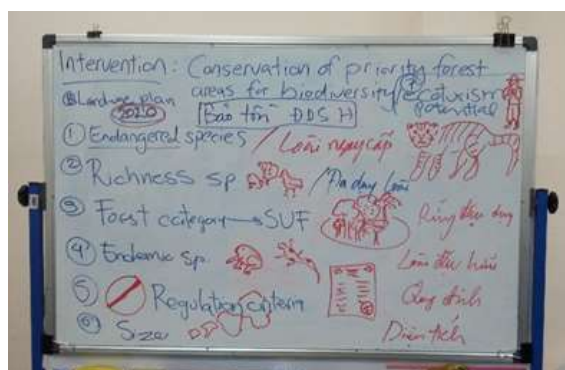 Intervention: Conservation of priority forest
areas for biodiversity / ecoturism
potential
Landuse plan
2020
Bảo tồn ĐDSH
① Endangered species / Loài nguy cấp
② Richness sp / Đa dạng loài
③ Forest category → SUF Rừng đặc dụng
④ Endemic sp. Loài đặc hữu
⑤ Regulation criteria Quy định
⑥ Size Diện tích